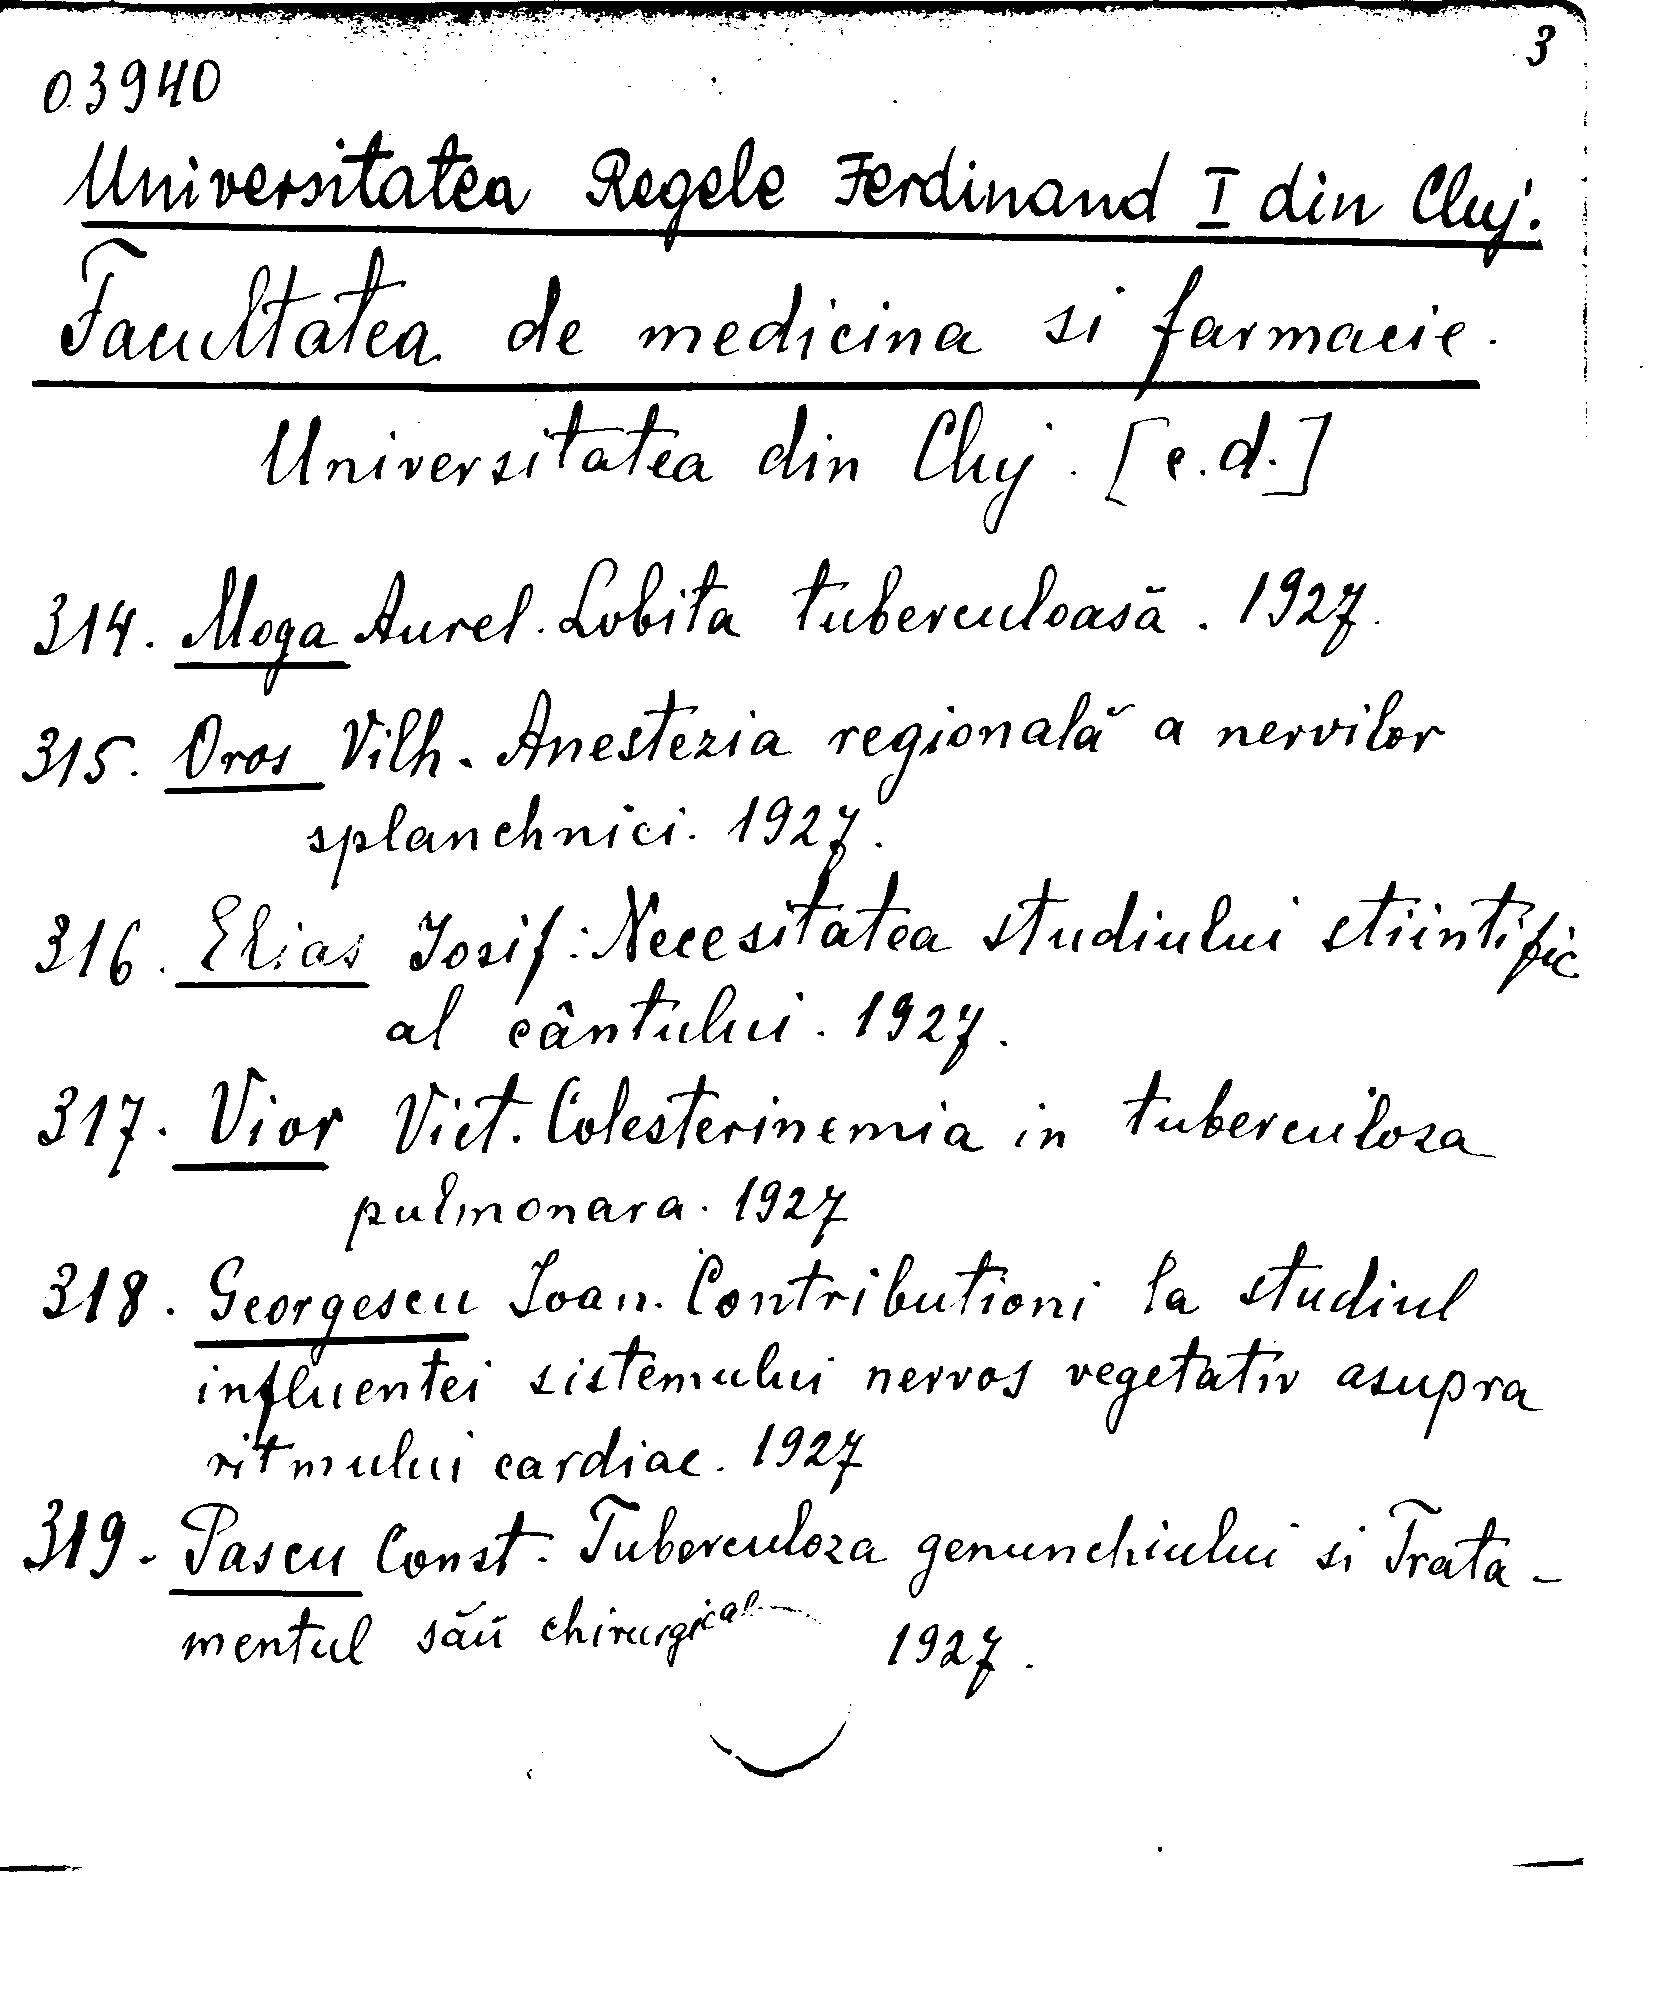 3
03940
Universitatea Regele Ferdinand I din Cluj.
Facultatea de medicina si farmacie.
Universitatea din Cluj. [c.d.]
314. Moga Aurel. Lobita tuberculoasă. 1927.
315. Oros Vilh. Anestezia regională a nervilor
splanchnici. 1927.
316. Elias Iosif: Necesitatea studiului stiintific
al cântului. 1927.
317. Vior Vict. Colesterinemia in tuberculoza
pulmonara. 1927
318. Georgescu Ioan. Contributioni la studiul
influentei sistemului nervos vegetativ asupra
ritmului cardiac. 1927
319. Pascu Const. Tuberculoza genunchiului si Trata-
mentul său chirurgical 1927.